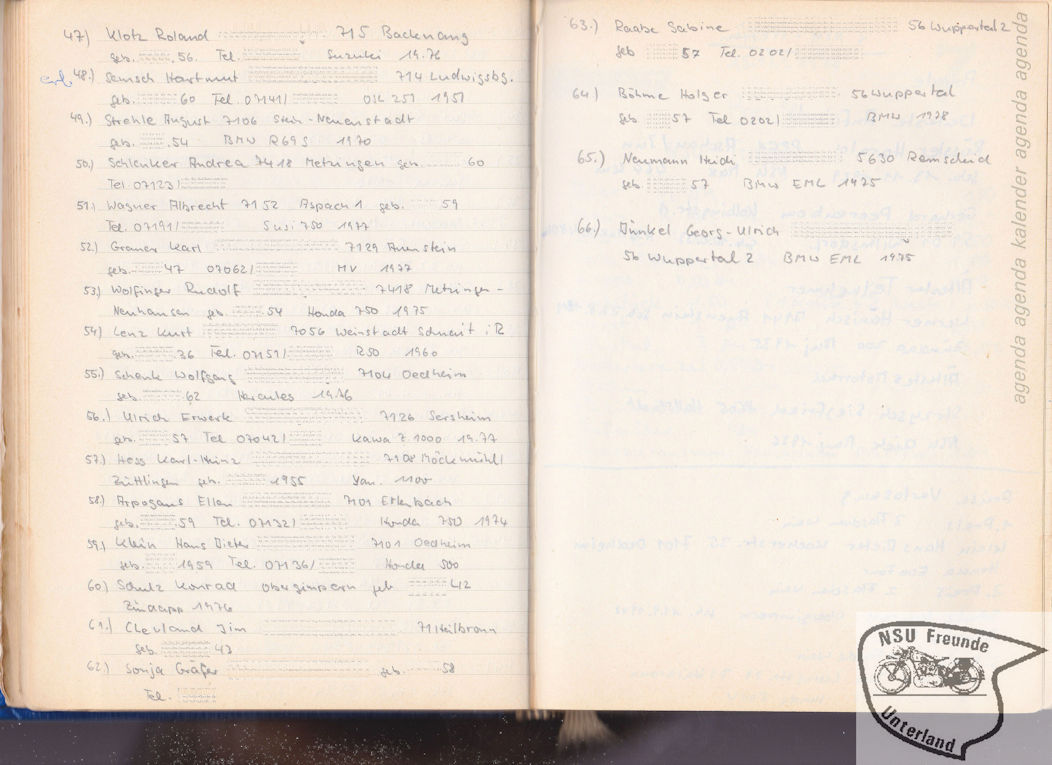 47.) Klotz Roland 715 Backnang
geb. 56. Tel. Suzuki 19.76
48.) Hartmut 714 Ludwigsbg.
geb. 60 Tel. 07141/ OSL 251 1951
49.) Strehle August 7106 Stein-Neuenstadt
geb. .54 BMW R69S 1970
50.) Schlenker Andrea 7418 Metzingen geb. 60
Tel. 07123/
51.) Wagner Albrecht 7152 Aspach 1 geb. 59
Tel. 07191/ Susi 750 1977
52.) Karl 7129
geb. 47 07062/ MV 1977
53.) Wolfinger Rudolf 7418 Metzingen-
Neuhausen geb. 54 Honda 750 1975
54) Lenz Kurt 7056 Weinstadt Schnait i.R
geb. 36 Tel. 07151/ R50 1960
55.) Schenk Wolfgang 7104 Oedheim
geb. 62 Hercules 19.76
56.) Ulrich Erwerk 7126 Sersheim
geb. 57 Tel 07042/ Kawa Z 1000 19.77
57.) Hess Karl-Heinz 7108 Möckmühl/
Züttlingen geb. 1955 Yam. 1100
58.) Ellen 7101 Erlenbach
geb. 59 Tel. 07132/ Honda 750 1974
59.) Klein Hans Dieter 7101 Oedheim
geb. 1959 Tel. 07136/ Honda 500
60) Schulz Konrad Obergimpern geb 42
Zündapp 1976
61.) Jim 71 Heilbronn
geb. 43
62.) Sonja Gräfer geb. 58
Tel.
63.) Raabe Sabine 56 Wuppertal 2
geb 57 Tel. 0202/
64) Böhme Holger 56 Wuppertal
geb 57 Tel 0202/ BMW 1978
65.) Neumann Heidi 5630 Remscheid
geb. 57 BMW EML 1975
66.) Dünkel Georg-Ulrich
56 Wuppertal 2 BMW EML 1975
agenda agenda kalender agenda agenda
NSU Freunde
Unterland